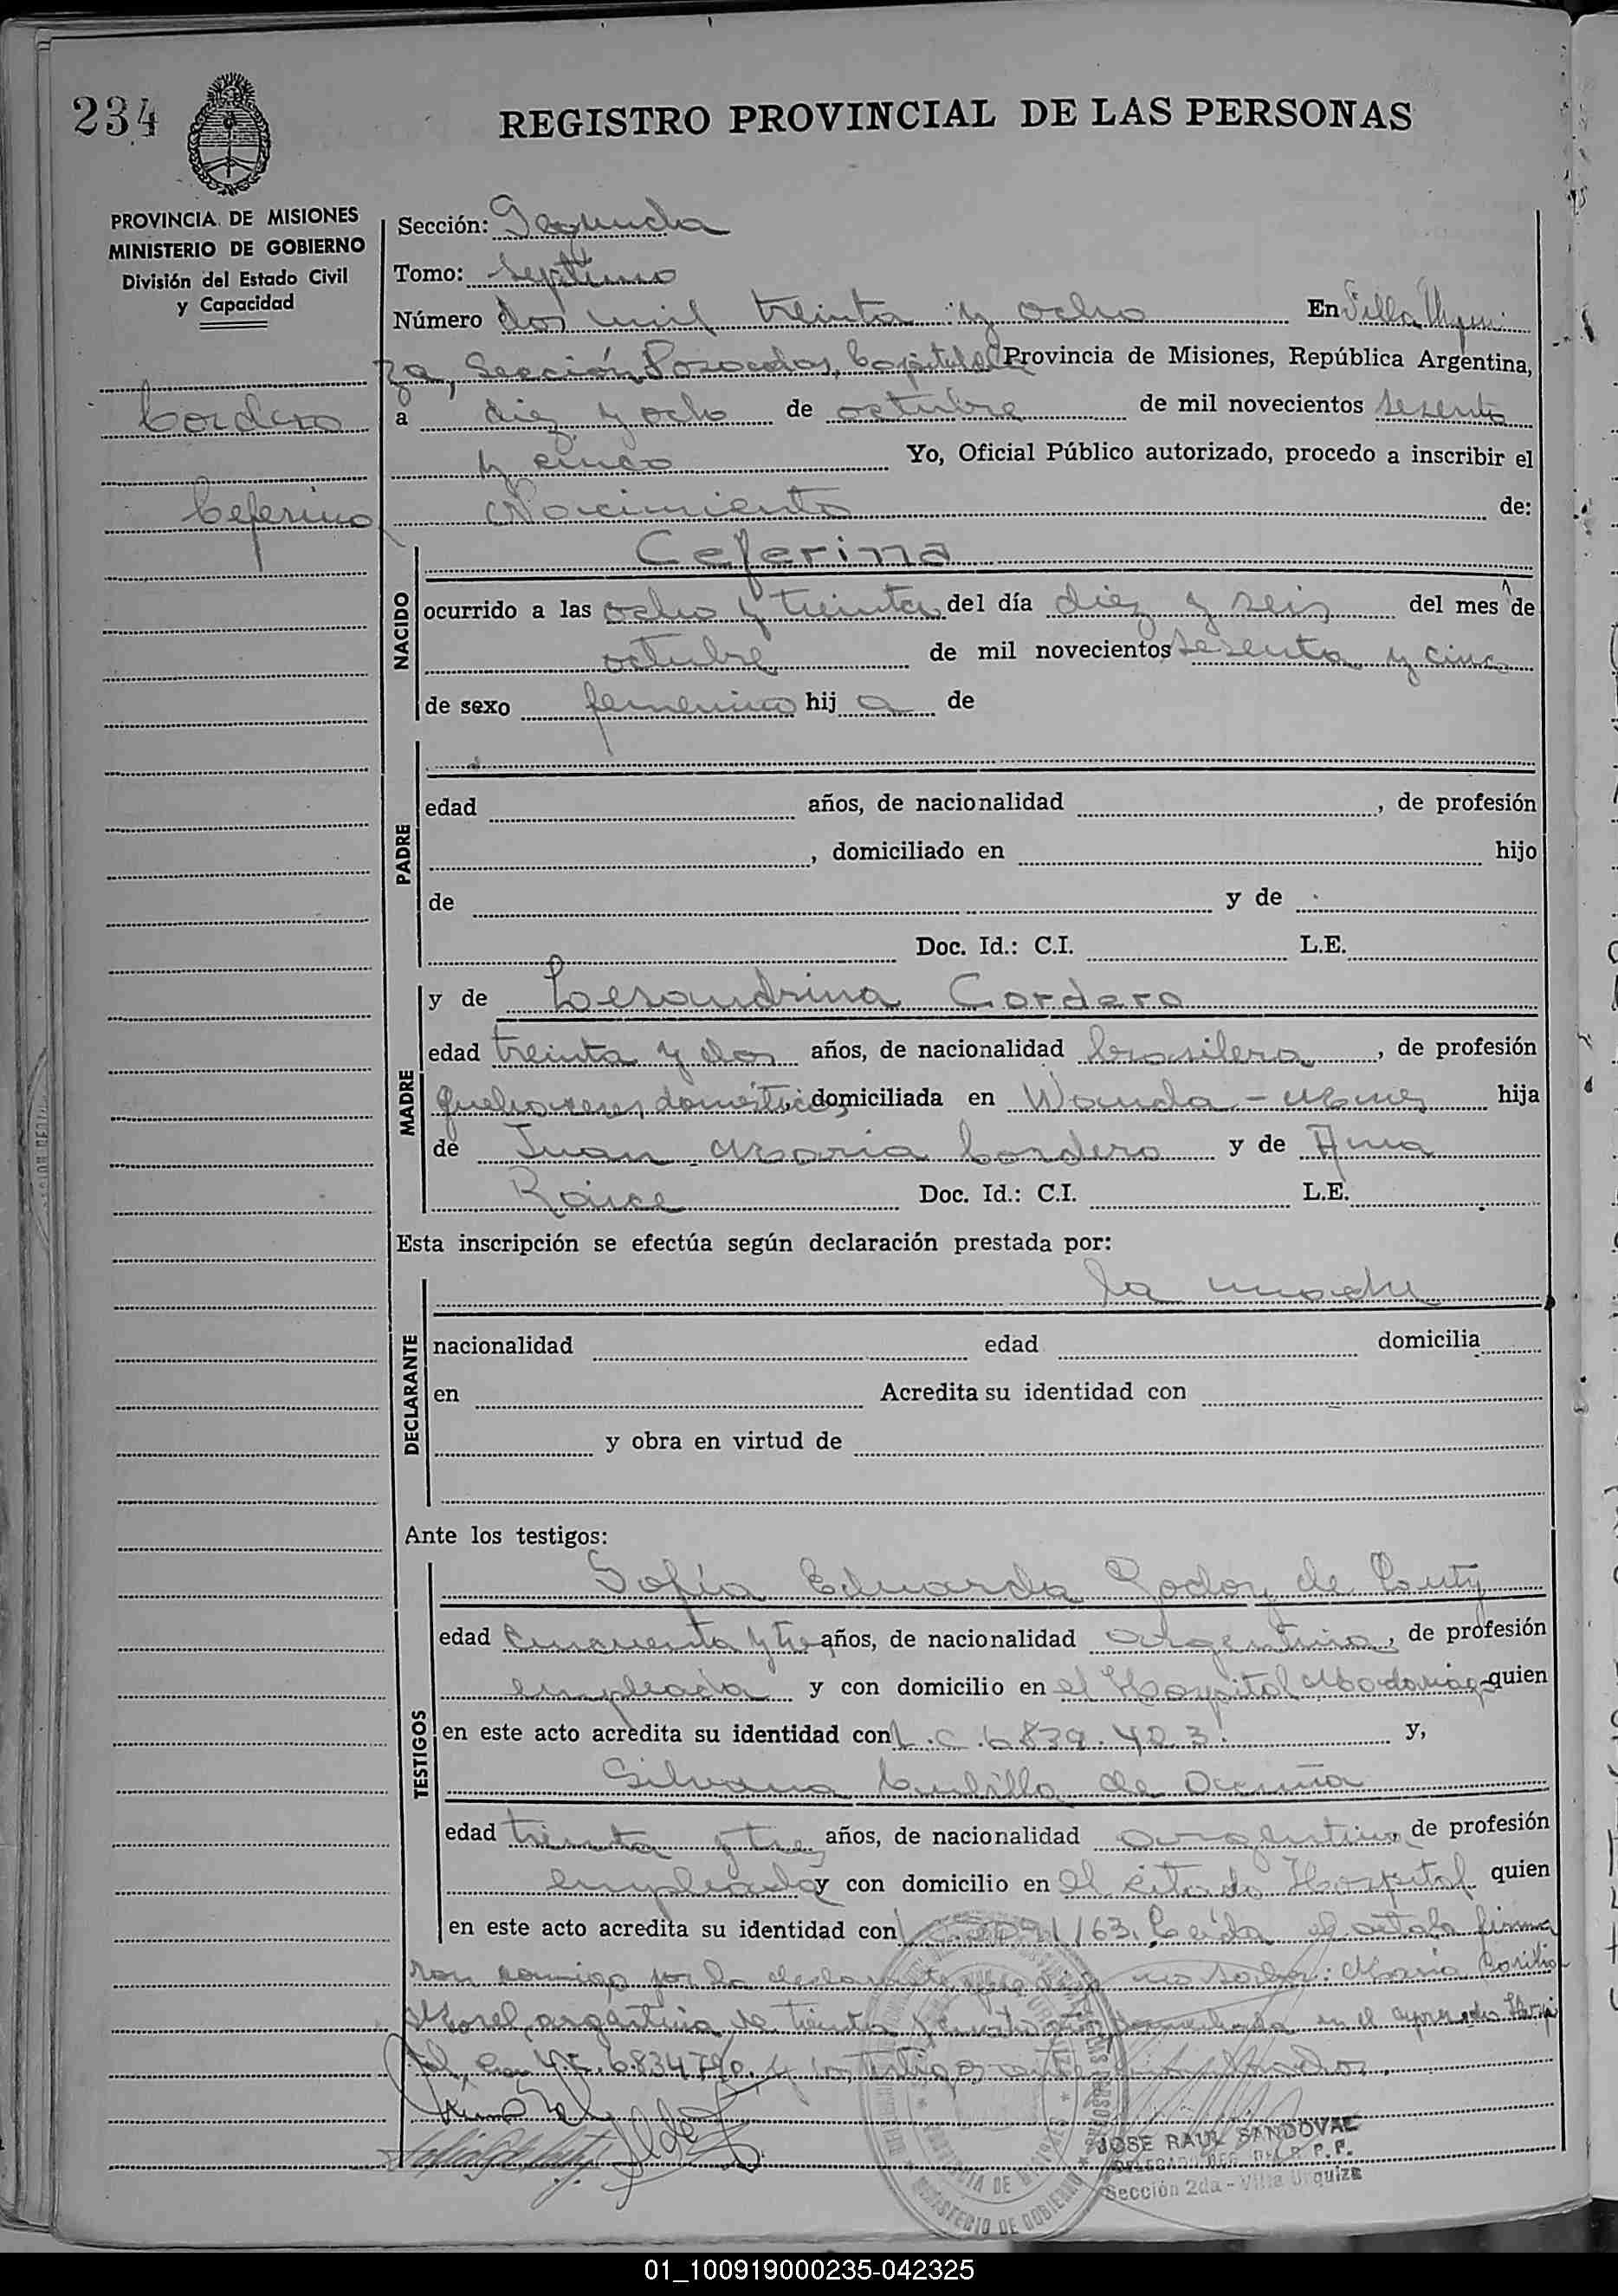 234
REGISTRO PROVINCIAL DE LAS PERSONAS
PROVINCIA DE MISIONES
MINISTERIO DE GOBIERNO
División del Estado Civil
y Capacidad
Sección: Segunda
Tomo: Septimo
Número dos mil treinta y ocho En Villa Urqui
za, Sección Posadas, Capital de la Provincia de Misiones, República Argentina,
Cordero
a diez y ocho de octubre de mil novecientos sesenta
y cinco Yo, Oficial Público autorizado, procedo a inscribir el
Ceferina
Nacimiento de:
NACIDO
Ceferina
ocurrido a las ocho y treinta del día diez y seis del mes de
octubre de mil novecientos sesenta y cinco
de sexo femenino hij a de
PADRE
edad años, de nacionalidad , de profesión
, domiciliado en hijo
de y de
Doc. Id.: C.I. L.E.
MADRE
y de Lesandrina Cordero
edad treinta y dos años, de nacionalidad brasilera, de profesión
quehaceres domésticos, domiciliada en Wanda - Mnes hija
de Juan Maria Cordero y de Ana
Doc. Id.: C.I. L.E.
Esta inscripción se efectúa según declaración prestada por:
la madre
DECLARANTE
nacionalidad edad domicilia
en Acredita su identidad con
y obra en virtud de
Ante los testigos:
TESTIGOS
Sofía Eduarda Godoy de
edad cincuenta y tres años, de nacionalidad argentina, de profesión
empleada y con domicilio en el Hospital Madariaga quien
en este acto acredita su identidad con L.C. 6.839.423. y,
Silvana Cubilla de Acuña
edad treinta y tres años, de nacionalidad argentina, de profesión
empleada y con domicilio en el citado Hospital quien
en este acto acredita su identidad con /63. Leída el acta la firma
ron conmigo por la declarante que dijo no saber: María
Morel, argentina, de treinta y años domiciliada en el Hospi
tal, con y los testigos
JOSE RAUL SANDOVAL
DELEGADO REG. DEL R. P. P.
Sección 2da - Villa Urquiza
MINISTERIO DE GOBIERNO
PROVINCIA DE MISIONES
01_100919000235-042325